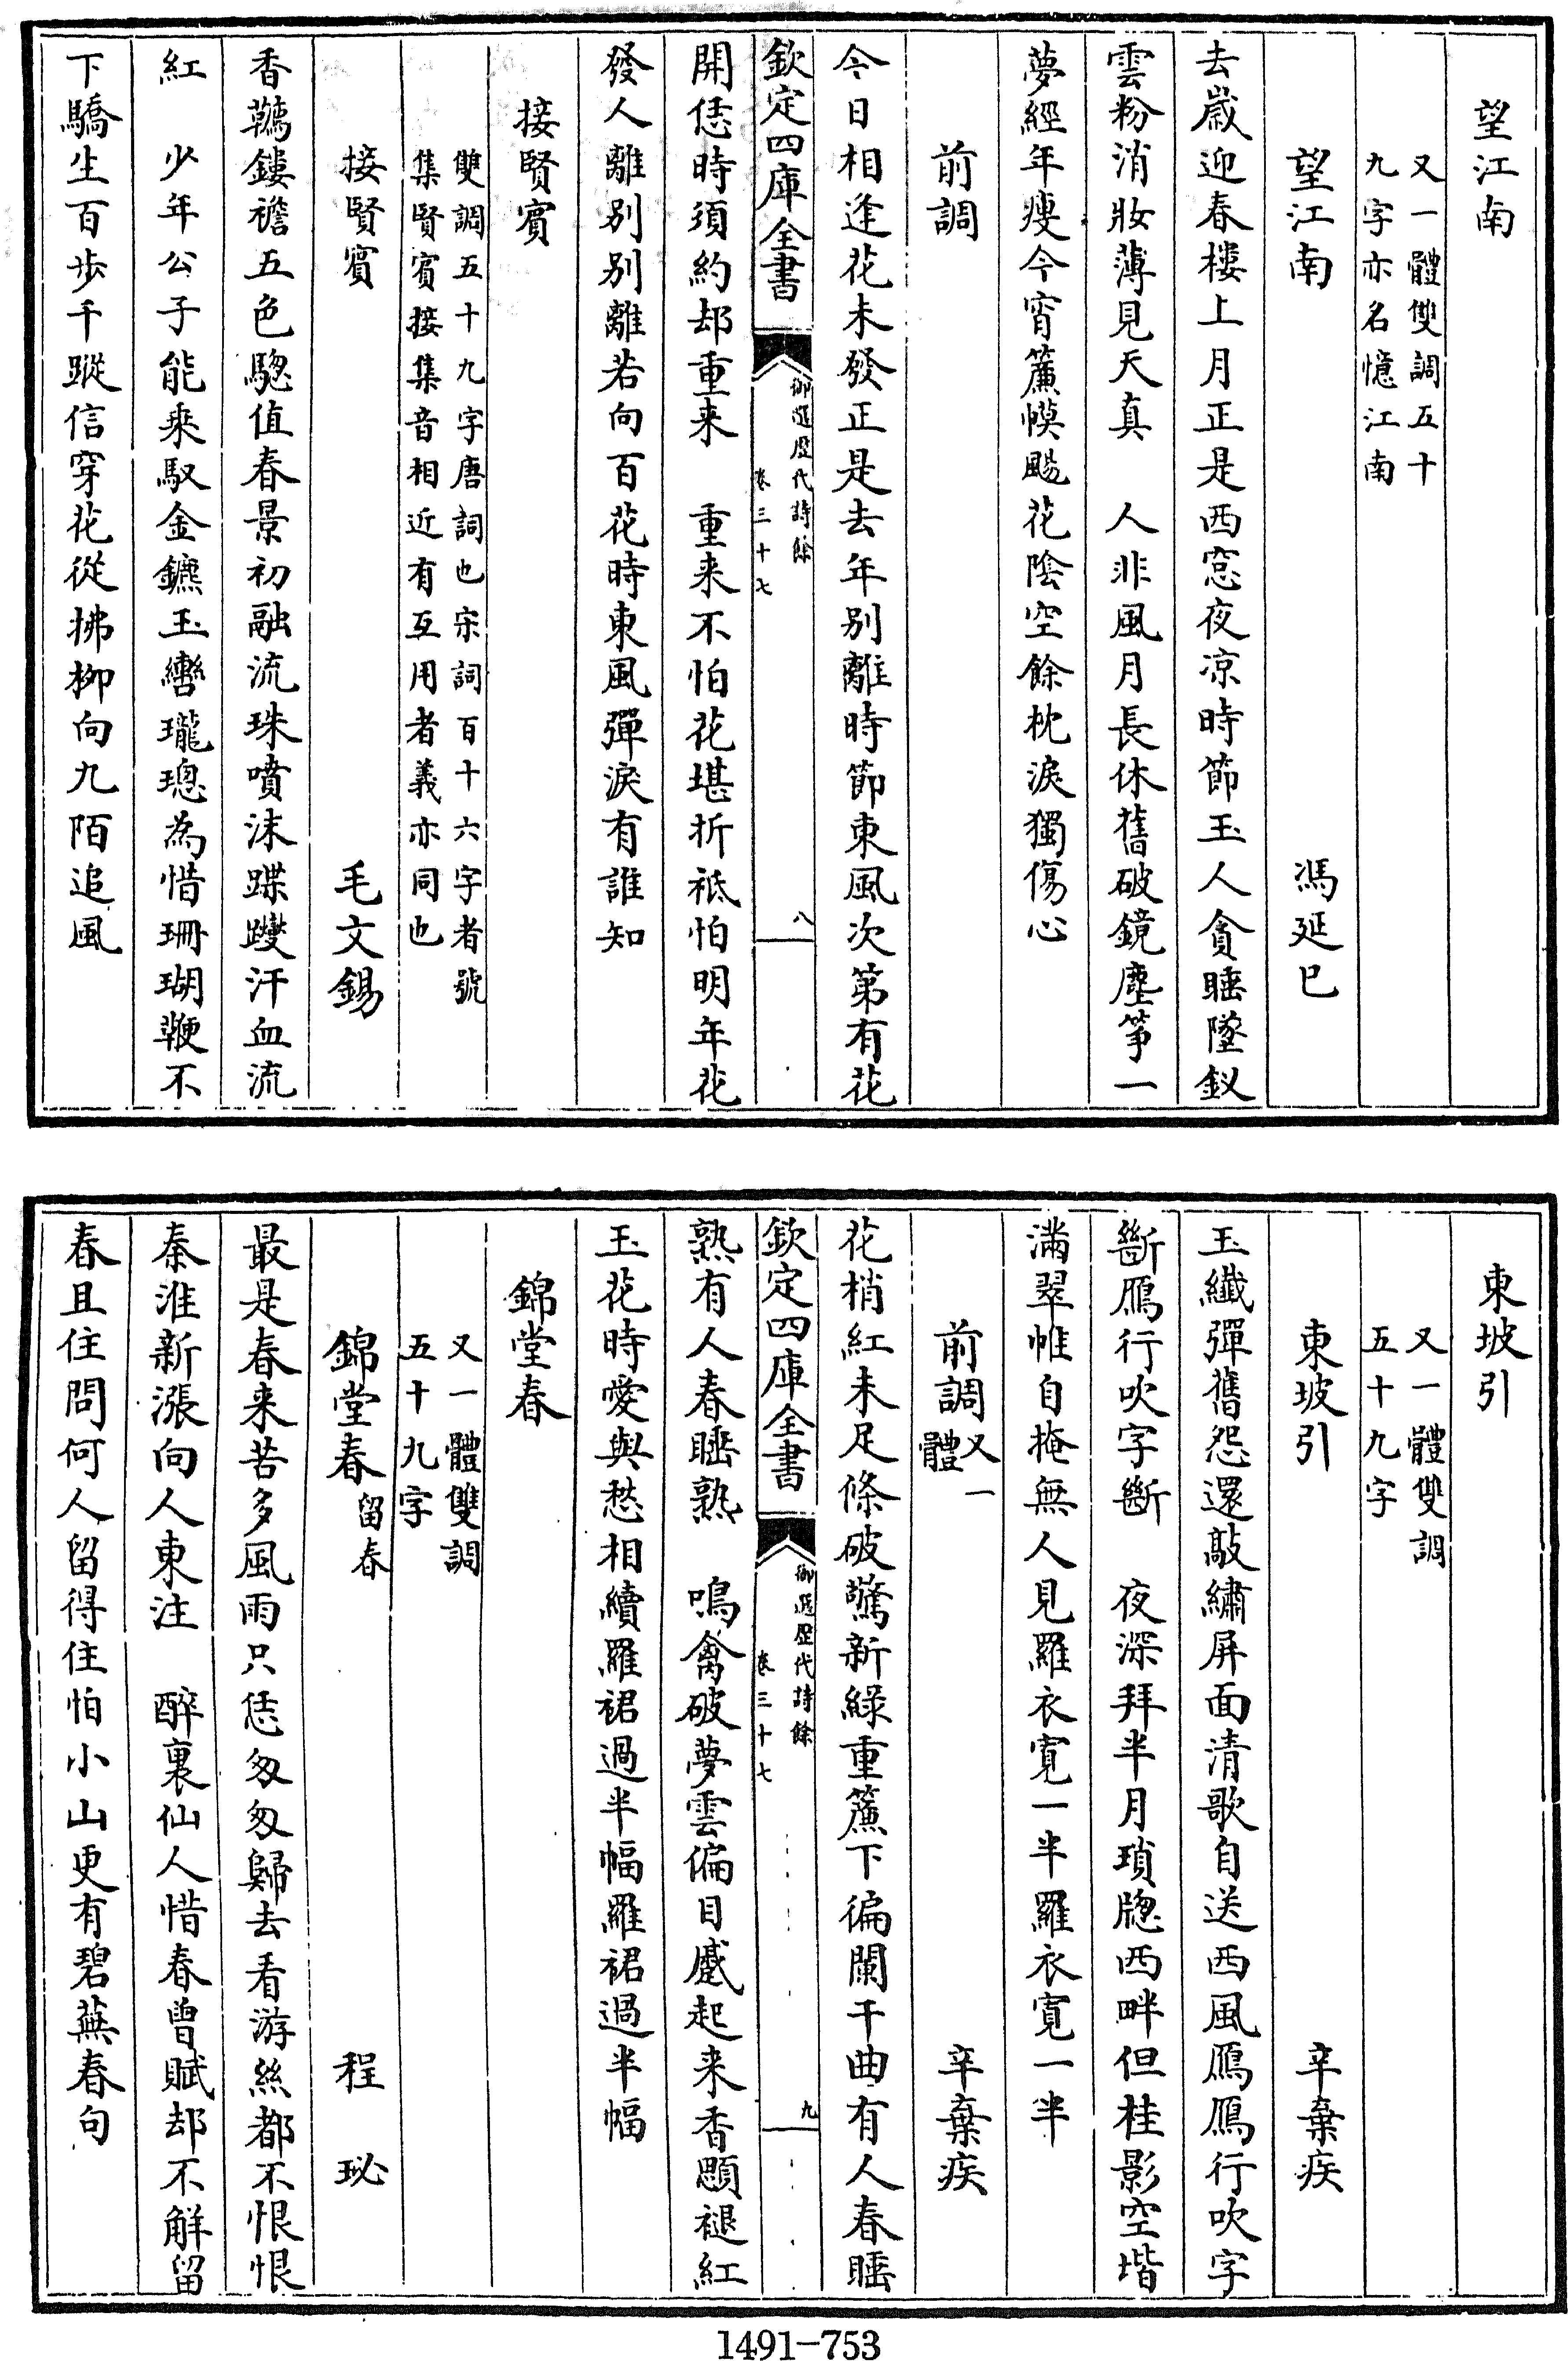 望江南
又一體雙調五十
九字亦名憶江南
望江南　馮延巳
去歳迎春樓上月正是西窓夜凉時節玉人貪睡墜釵
雲粉消妝薄見天真　人非風月長休舊破鏡塵筝一
夢經年瘦今宵簾幙颺花陰空餘枕淚獨傷心
前調
今日相逢花未發正是去年别離時節東風次第有花
欽定四庫全書
御選歷代詩餘
卷三十七
八
開恁時須約却重来　重来不怕花堪折祗怕明年花
發人離别别離若向百花時東風彈淚有誰知
接賢賓
雙調五十九字唐詞也宋詞百十六字者號
集賢賓接集音相近有互用者義亦同也
接賢賓　毛文錫
香韀鏤襜五色驄值春景初融流珠噴沫躞蹀汗血流
紅　少年公子能乘馭金鑣玉轡瓏璁為惜珊瑚鞭不
下驕生百步千蹤信穿花從拂栁向九陌追風
東坡引
又一體雙調
五十九字
東坡引　辛棄疾
玉纖彈舊怨還敲繡屏面清歌自送西風鴈鴈行吹字
斷鴈行吹字斷　夜深拜半月瑣牕西畔但桂影空堦
滿翠帷自掩無人見羅衣寛一半羅衣寛一半
前調又一體　辛棄疾
花梢紅未足條破驚新緑重簾下徧闌干曲有人春睡
欽定四庫全書
御選歷代詩餘
卷三十七
九
熟有人春睡熟　鳴禽破夢雲偏目蹙起来香顋褪紅
玉花時愛與愁相續羅裙過半幅羅裙過半幅
錦堂春
又一體雙調
五十九字
錦堂春留春　程珌
最是春来苦多風雨只恁匆匆歸去看游絲都不恨恨
秦淮新漲向人東注　醉裏仙人惜春曽賦却不解留
春且住問何人留得住怕小山更有碧蕪春句
1491-753